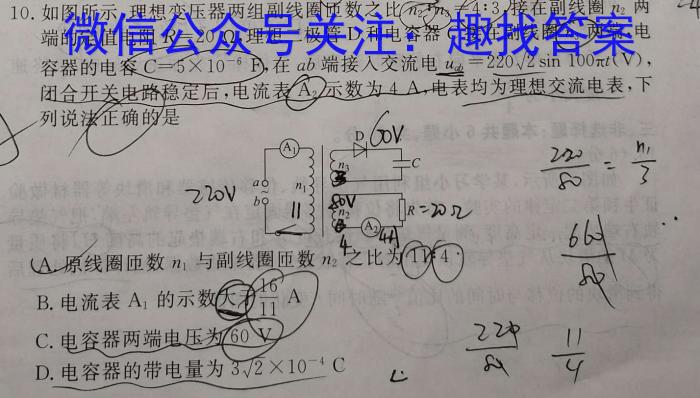 10. 如图所示,理想变压器两组副线圈匝数之比 n₂:n₃=4:3,接在副线圈 n₂ 两
微信公众号关注：趣找答案
端的 值电阻 R=20Ω,理想二极管 D 和电容器 C 接在副线圈 两端,电
容器的电容 C=5×10⁻⁶ F,在 ab 端接入交流电 u_ab=220√2 sin 100πt(V),
闭合开关电路稳定后,电流表 A₂ 示数为 4 A,电表均为理想交流电表,下
列说法正确的是
220V
A₁
a
b
n₁
11
n₃
3
80V
n₂
4
D
60V
C
R=20Ω
A₂
4A
220/80 = n₁/3
660/80
A. 原线圈匝数 n₁ 与副线圈匝数 n₂ 之比为 11:4
B. 电流表 A₁ 的示数大于 16/11 A
C. 电容器两端电压为 60 V
D. 电容器的带电量为 3√2×10⁻⁴ C
220/80
11/4